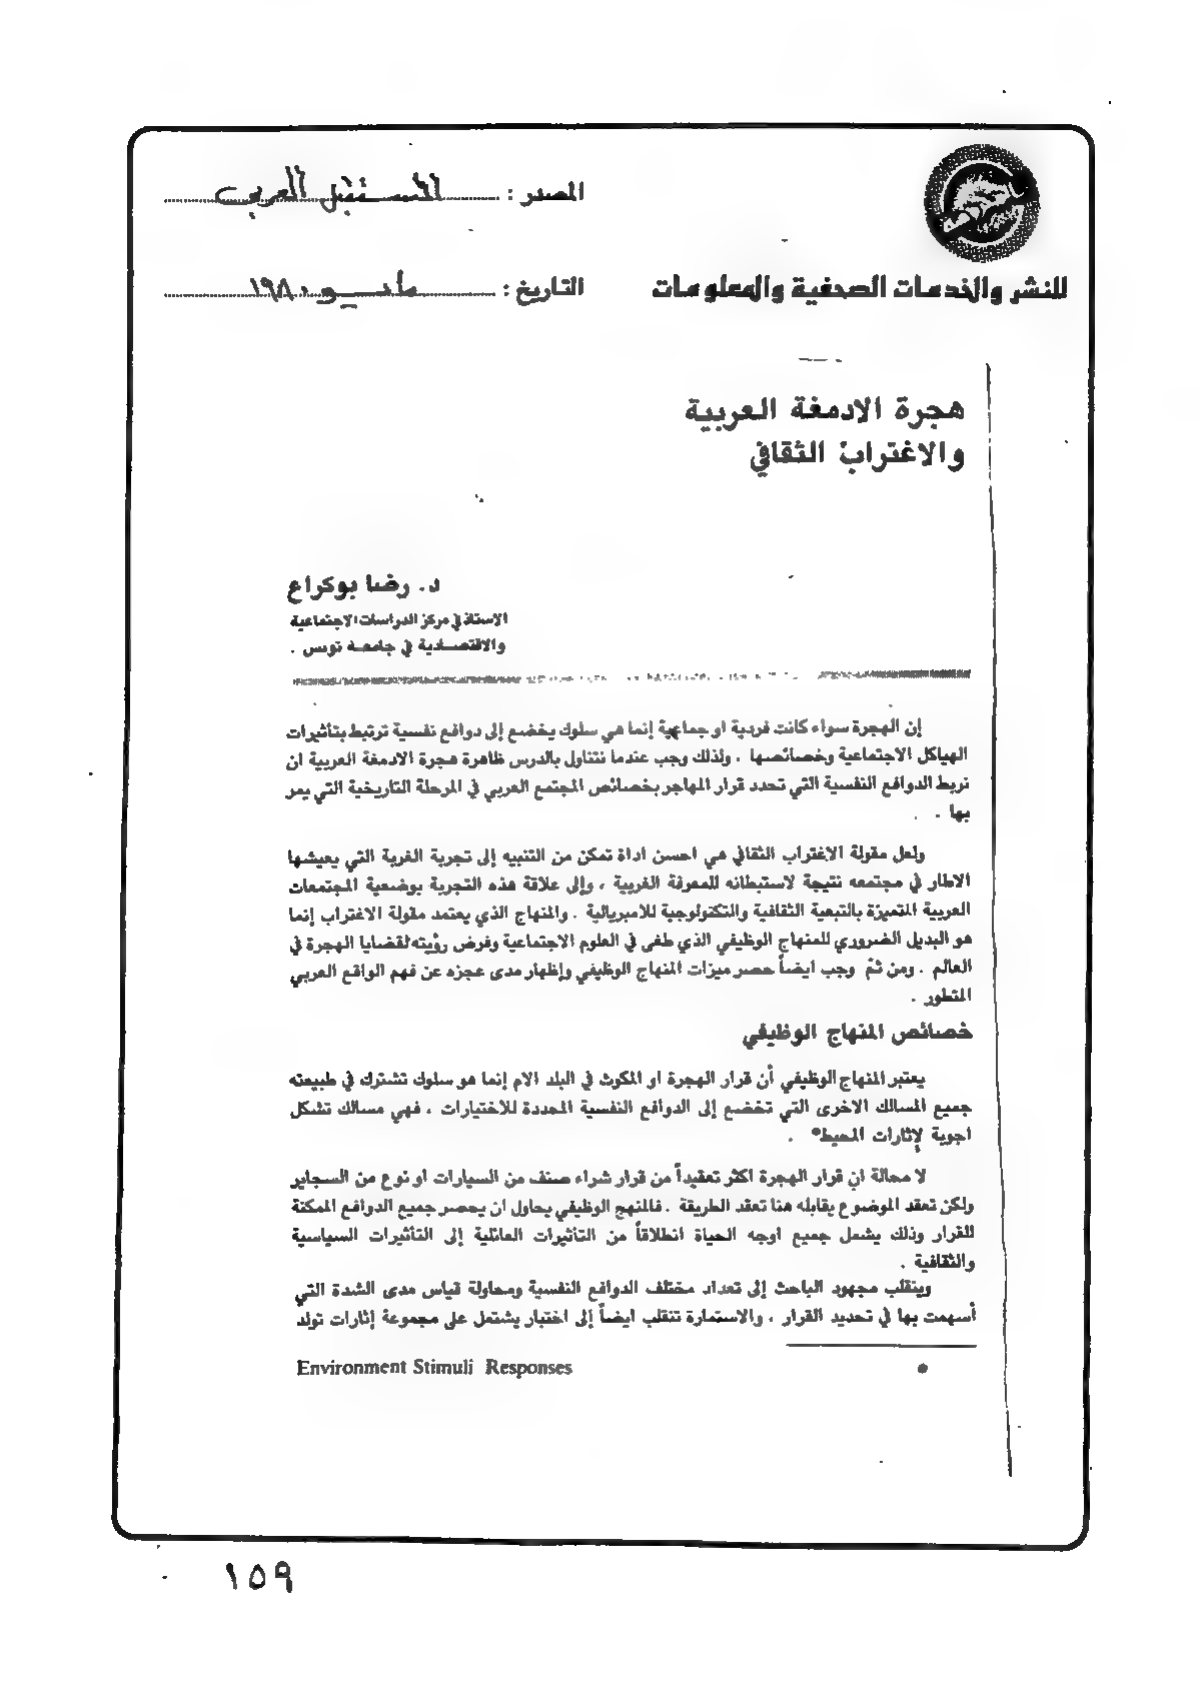 المصدر : المستقبل العربي
للنشر والخدمات الصحفية والمعلومات
التاريخ : مايو ١٩٨٠
هجرة الادمغة العربية
والاغتراب الثقافي
د. رضا بوكراع
الاستاذ في مركز الدراسات الاجتماعية
والاقتصادية في جامعة تونس .
إن الهجرة سواء كانت فردية او جماعية إنما هي سلوك يخضع إلى دوافع نفسية ترتبط بتأثيرات
الهياكل الاجتماعية وخصائصها . ولذلك وجب عندما نتناول بالدرس ظاهرة هجرة الادمغة العربية ان
نربط الدوافع النفسية التي تحدد قرار المهاجر بخصائص المجتمع العربي في المرحلة التاريخية التي يمر
بها .
ولعل مقولة الاغتراب الثقافي هي احسن اداة تمكن من التنبيه إلى تجربة الغربة التي يعيشها
الاطار في مجتمعه نتيجة لاستبطانه للمعرفة الغربية ، وإلى علاقة هذه التجربة بوضعية المجتمعات
العربية المتميزة بالتبعية الثقافية والتكنولوجية للامبريالية . والمنهاج الذي يعتمد مقولة الاغتراب إنما
هو البديل الضروري للمنهاج الوظيفي الذي طغى في العلوم الاجتماعية وفرض رؤيته لقضايا الهجرة في
العالم . ومن ثمّ وجب ايضاً حصر ميزات المنهاج الوظيفي وإظهار مدى عجزه عن فهم الواقع العربي
المتطور .
خصائص المنهاج الوظيفي
يعتبر المنهاج الوظيفي أن قرار الهجرة او المكوث في البلد الام إنما هو سلوك تشترك في طبيعته
جميع المسالك الاخرى التي تخضع إلى الدوافع النفسية المحددة للاختيارات ، فهي مسالك تشكل
اجوبة لإثارات المحيط* .
لا محالة ان قرار الهجرة اكثر تعقيداً من قرار شراء صنف من السيارات او نوع من السجاير
ولكن تعقد الموضوع يقابله هنا تعقد الطريقة . فالمنهج الوظيفي يحاول ان يحصر جميع الدوافع الممكنة
للقرار وذلك يشمل جميع اوجه الحياة انطلاقاً من التأثيرات العائلية إلى التأثيرات السياسية
والثقافية .
وينقلب مجهود الباحث إلى تعداد مختلف الدوافع النفسية ومحاولة قياس مدى الشدة التي
أسهمت بها في تحديد القرار ، والاستمارة تنقلب ايضاً إلى اختبار يشتمل على مجموعة إثارات تولد
* Environment Stimuli Responses
١٥٩